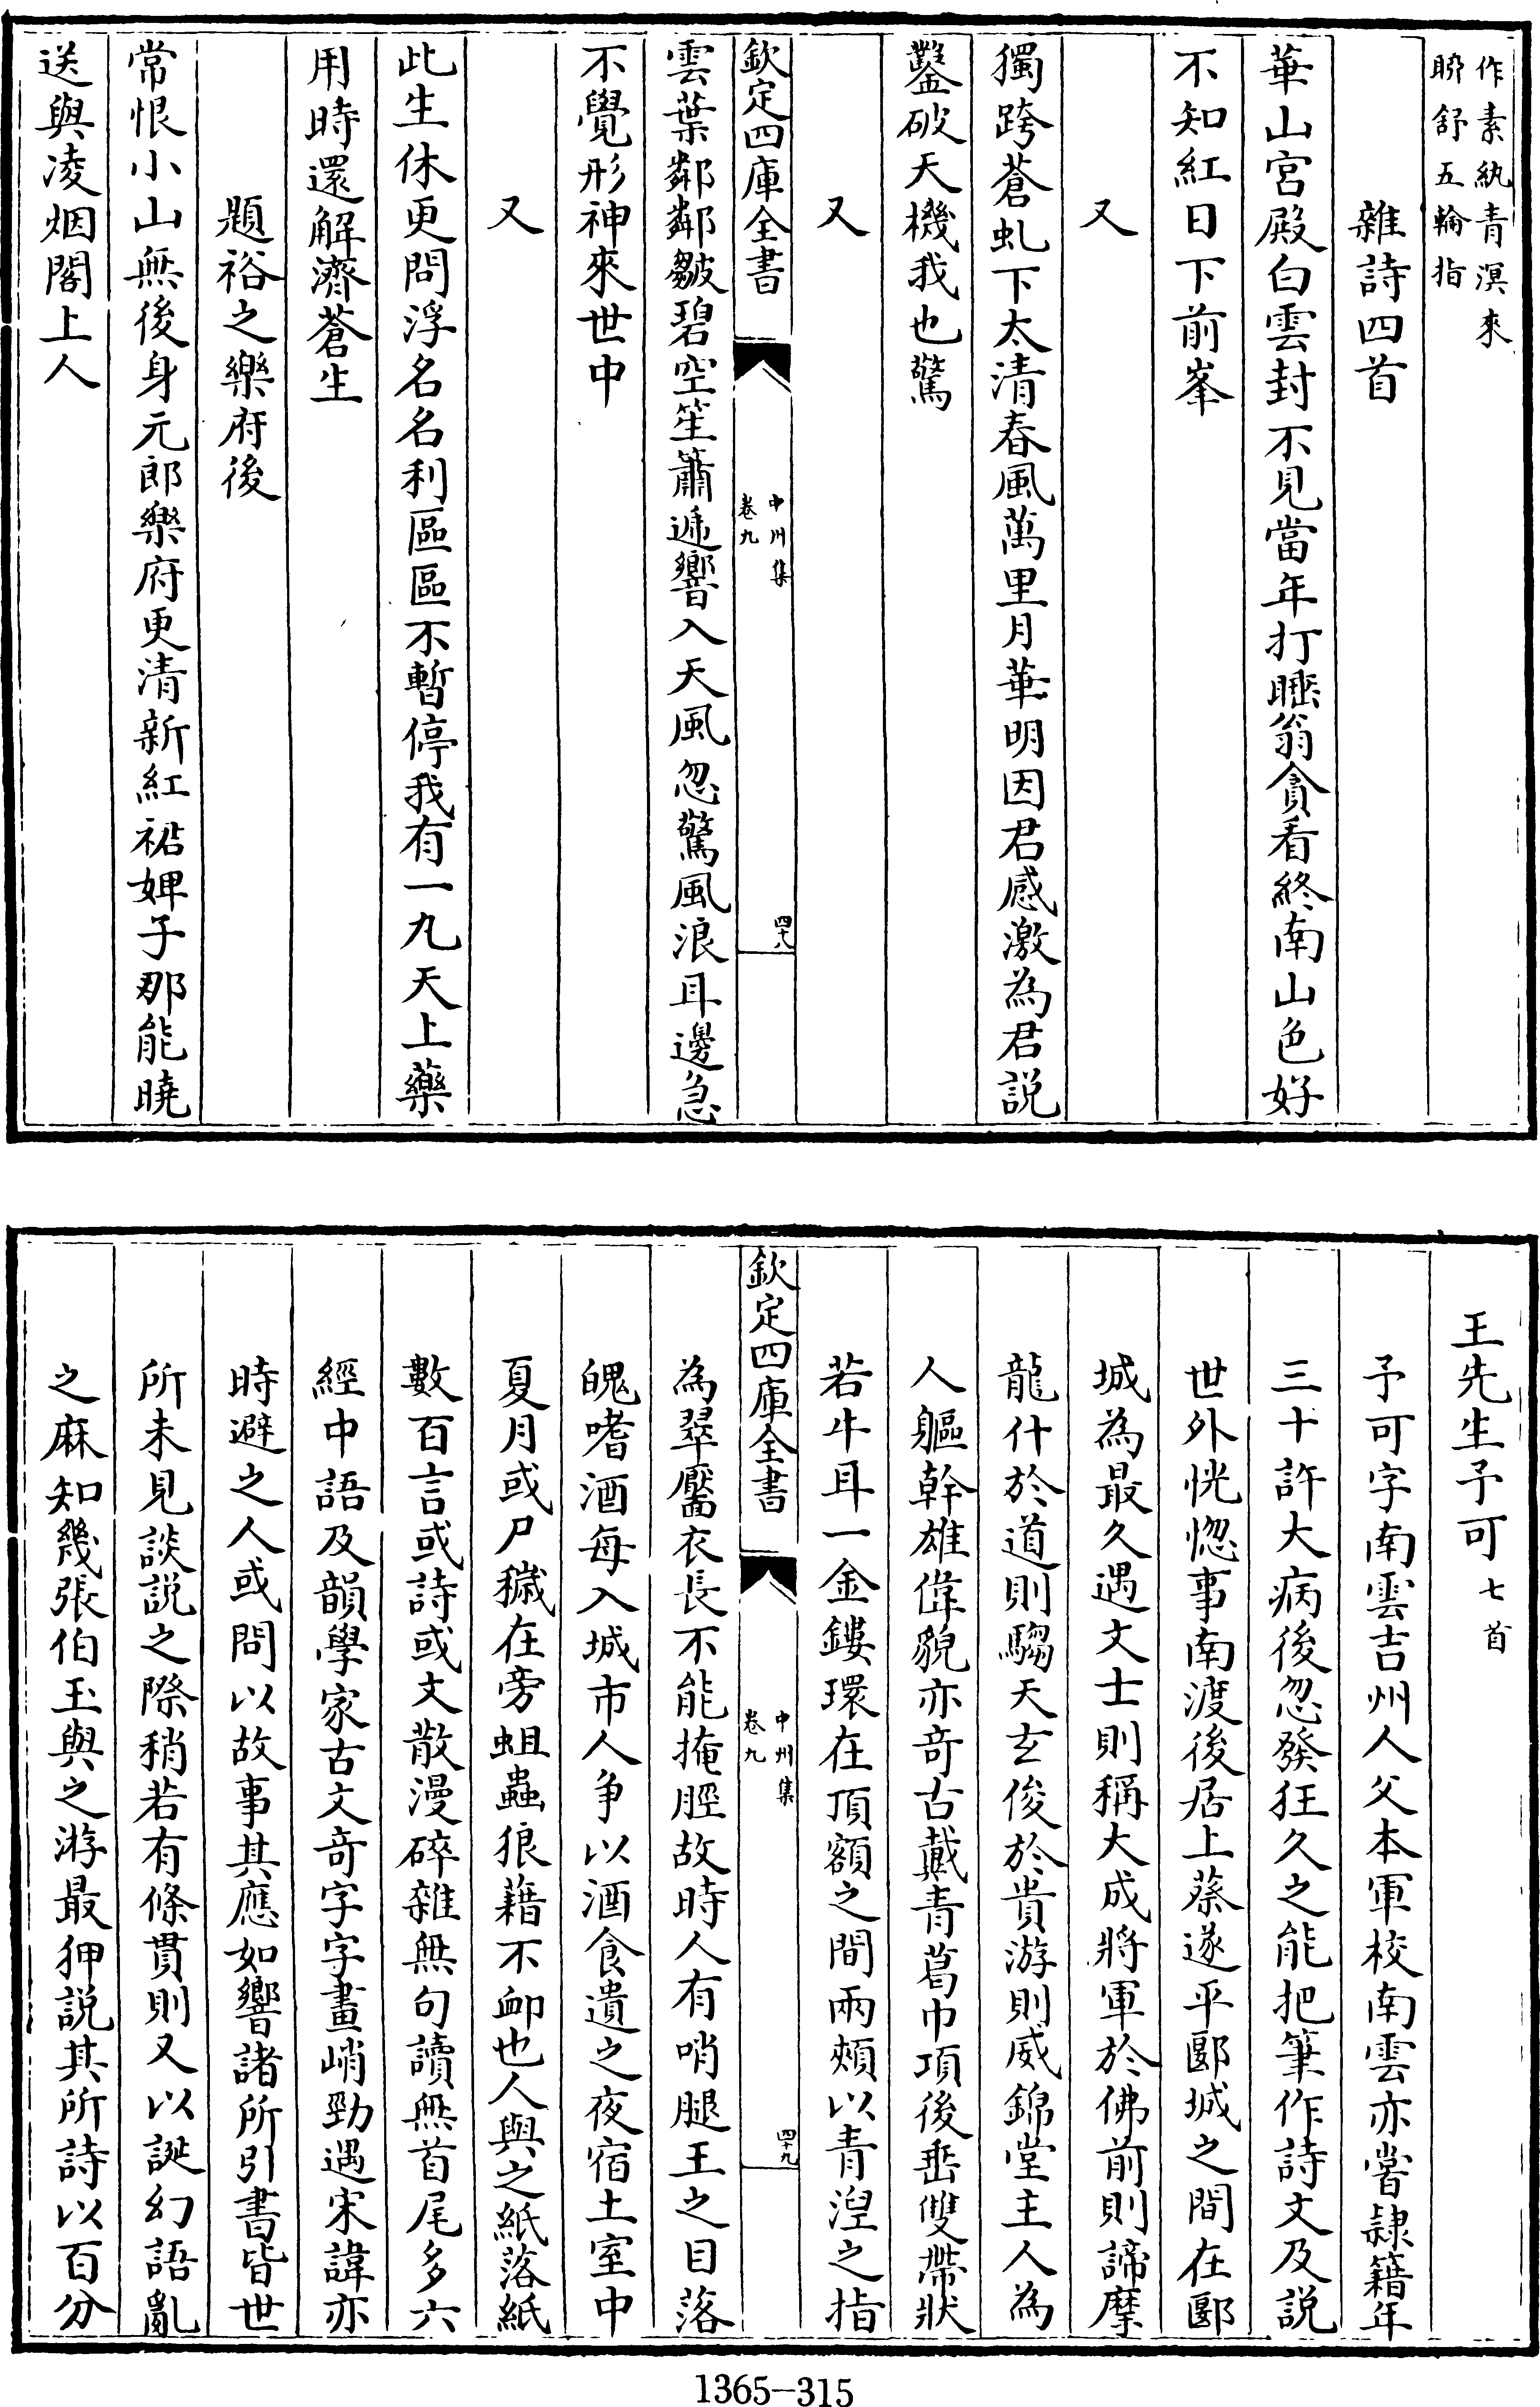 作素紈青溟來
聊舒五輪指
雜詩四首
華山宮殿白雲封不見當年打睡翁貪看終南山色好
不知紅日下前峯
又
獨跨蒼虬下太清春風萬里月華明因君感激為君説
鑿破天機我也驚
又
欽定四庫全書
中州集
卷九
四十八
雲葉鄰鄰皺碧空笙簫遞響入天風忽驚風浪耳邊急
不覺形神來世中
又
此生休更問浮名名利區區不暫停我有一九天上藥
用時還解濟蒼生
題裕之樂府後
常恨小山無後身元郎樂府更清新紅裙婢子那能曉
送與凌烟閣上人
王先生予可七首
予可字南雲吉州人父本軍校南雲亦嘗隷籍年
三十許大病後忽發狂久之能把筆作詩文及説
世外恍惚事南渡後居上蔡遂平郾城之間在郾
城為最久遇文士則稱大成將軍於佛前則諦摩
龍什於道則騶天玄俊於貴游則威錦堂主人為
人軀幹雄偉貌亦竒古戴青葛巾項後垂雙帶狀
若牛耳一金鏤環在頂額之間兩頰以青涅之指
欽定四庫全書
中州集
卷九
四十九
為翠靨衣長不能掩脛故時人有哨腿王之目落
魄嗜酒每入城市人争以酒食遺之夜宿土室中
夏月或尸穢在旁蛆蟲狼藉不䘏也人與之紙落紙
數百言或詩或文散漫碎雜無句讀無首尾多六
經中語及韻學家古文竒字字畫峭勁遇宋諱亦
時避之人或問以故事其應如響諸所引書皆世
所未見談説之際稍若有條貫則又以誕幻語亂
之麻知幾張伯玉與之游最狎説其所詩以百分
1365-315